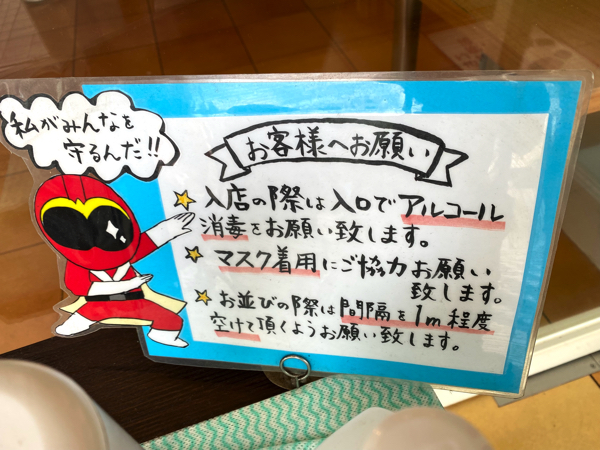 私がみんなを
守るんだ!!
お客様へお願い
入店の際は入口でアルコール
消毒をお願い致します。
マスク着用にご協力お願い
致します。
お並びの際は間隔を1m程度
空けて頂くようお願い致します。